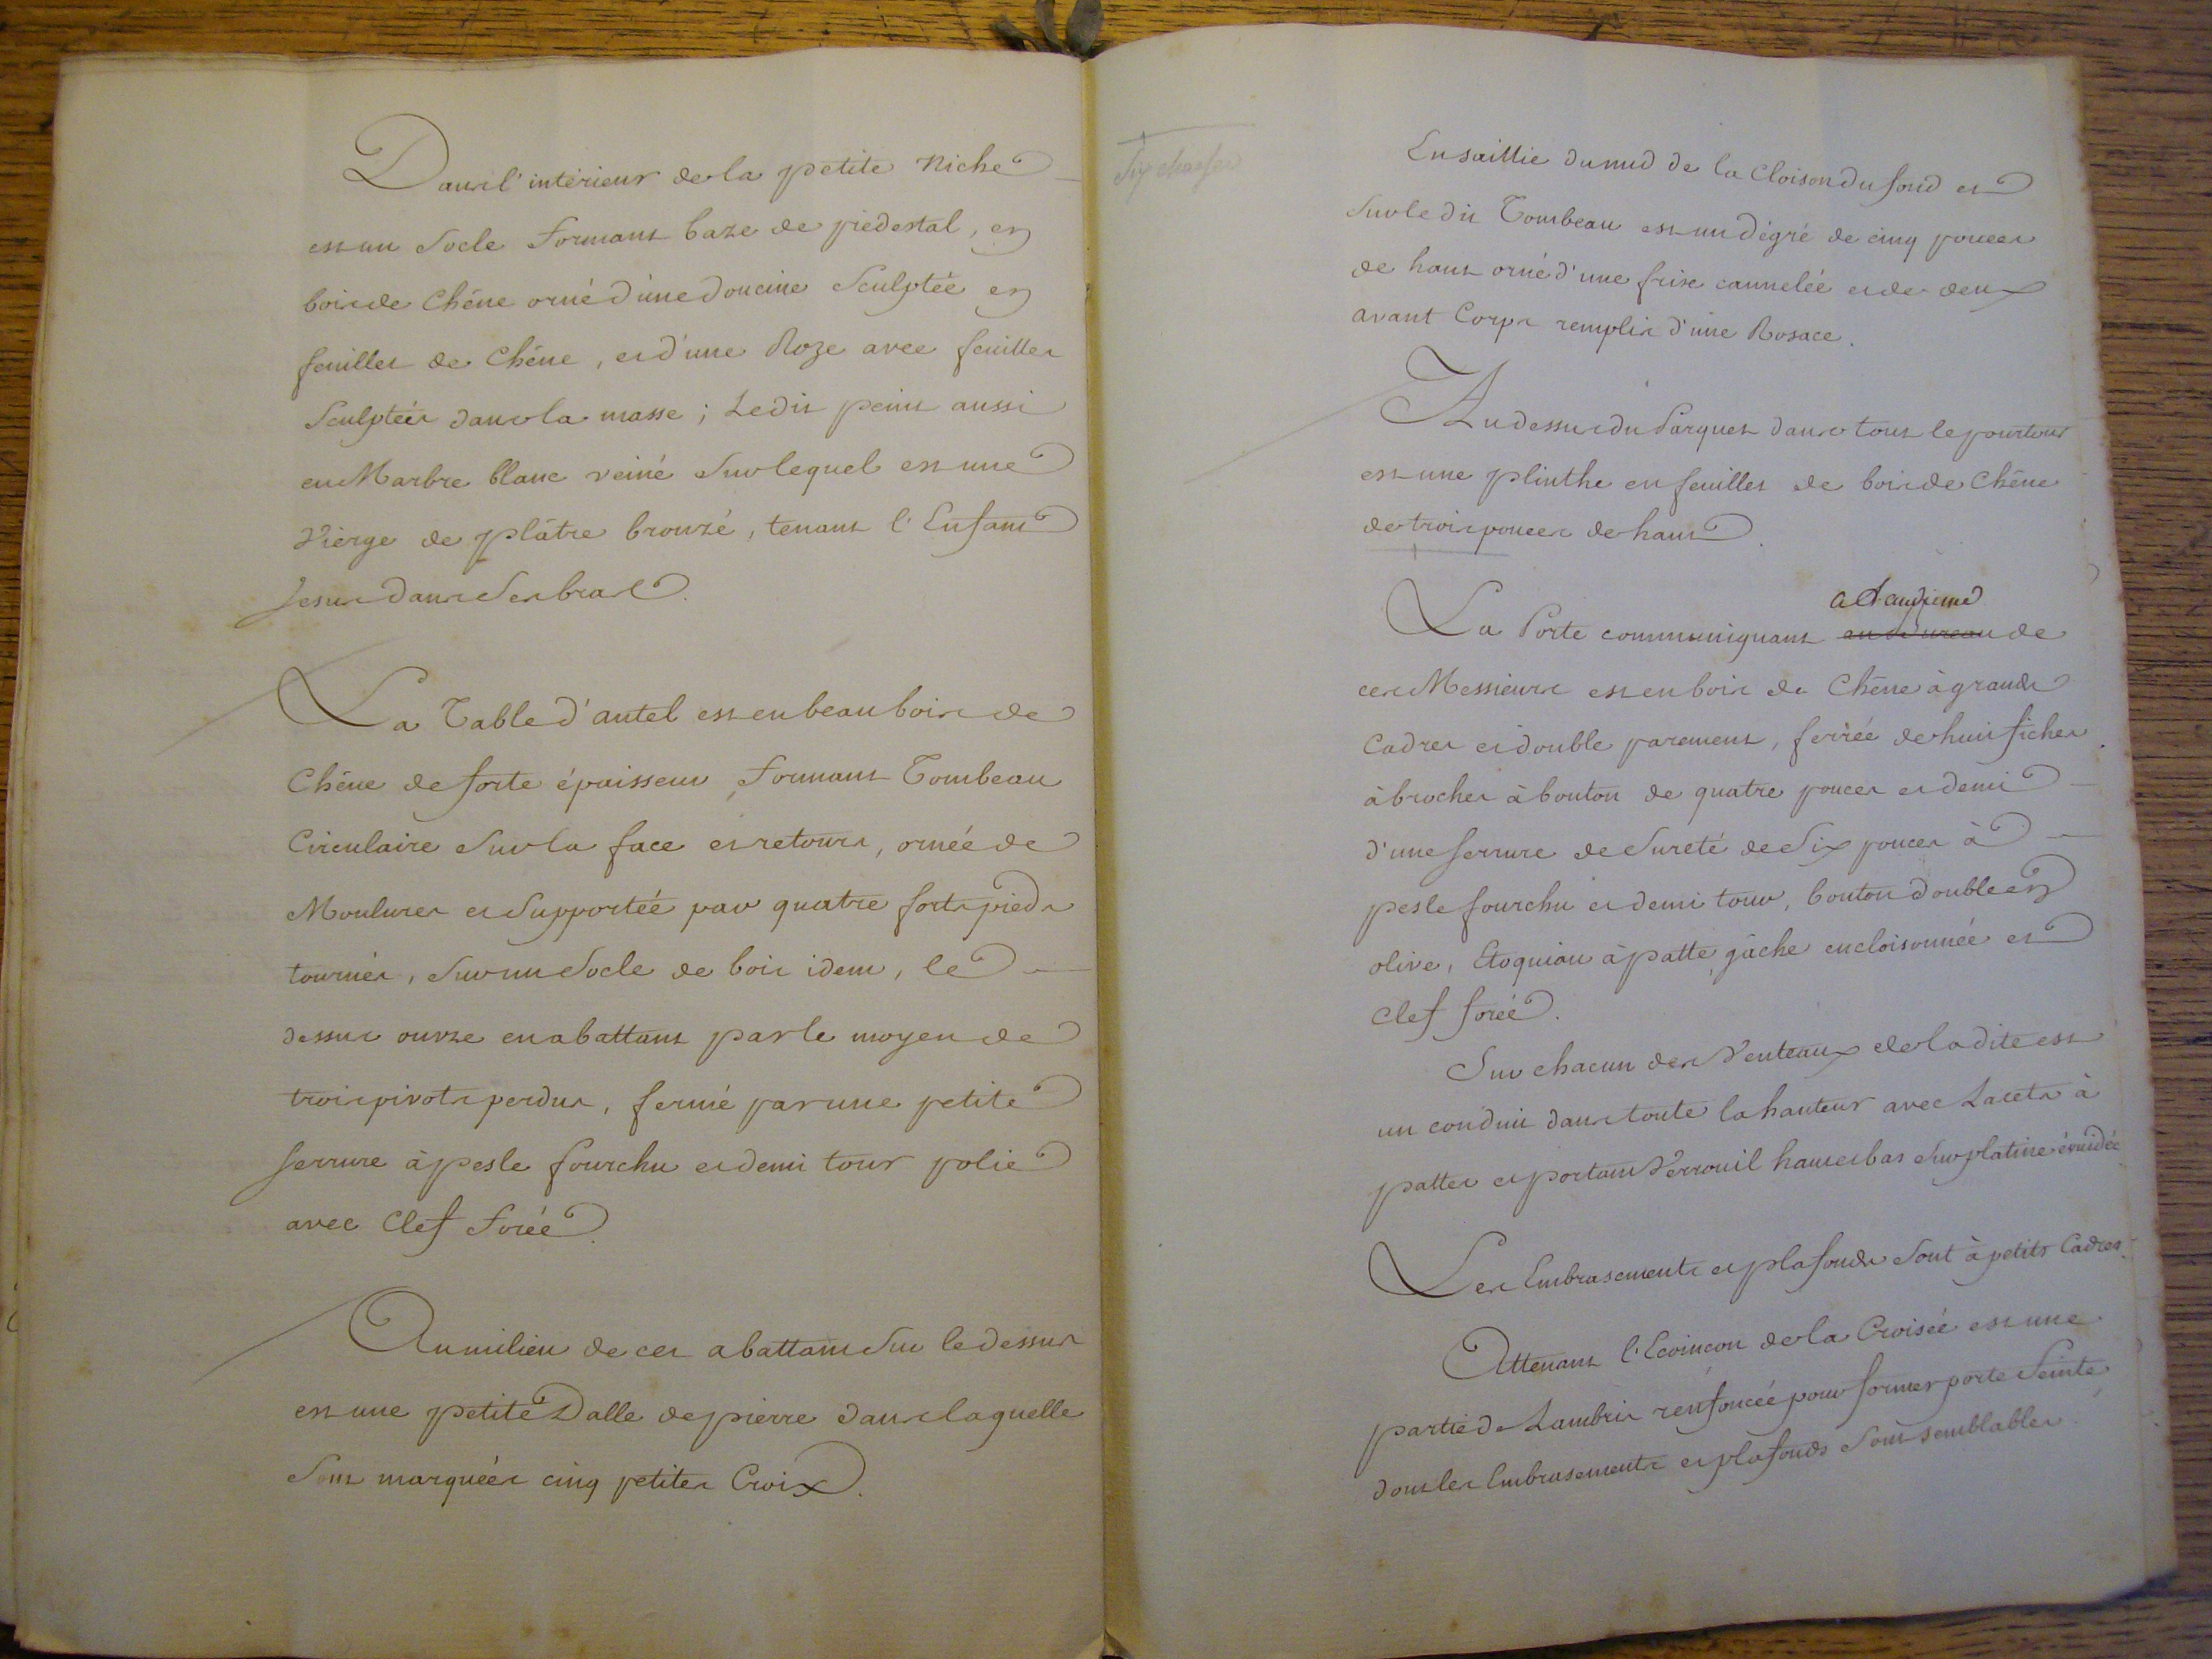 Dans l'intérieur de la petite Niche
est un Socle formant baze de piedestal, en
bois de Chêne orné d'une doucine Sculptée en
feuilles de Chêne, et d'une Roze avec feuilles
Sculptées dans la masse ; Ledit peint aussi
en Marbre blanc veiné Sur lequel est une
Vierge de plâtre bronzé, tenant l'Enfant
Jesus dans Ses bras.
La Table d'autel est en beau bois de
Chêne de forte épaisseur formant Tombeau
Circulaire Sur la face et retours, ornée de
Moulures et Supportée par quatre forts pieds
tournés, Sur un Socle de bois idem, le
dessus ouvre en abattant par le moyen de
trois pivots perdus, fermé par une petite
Serrure à pesle fourchu et demi tour polie
avec Clef forée.
Au milieu de cet abattant Sur le dessus
est une petite Dalle de pierre dans laquelle
Sont marquées cinq petites Croix.
En saillie du nud de la Cloison du fond et
Sur le dit Tombeau est un dégré de cinq pouces
de haut orné d'une frise cannelée et de deux
avant Corps remplis d'une Rosace.
Au dessus du Parquet dans tout le pourtour
est une plinthe en feuilles de bois de Chêne
de trois pouces de haut.
La Porte communiquant au Bureau de
ces Messieurs est en bois de Chêne à grands
Cadres et double parement, ferrée de huit fiches
à broches à bouton de quatre pouces et demi
d'une serrure de Sureté de Six pouces à
pesle fourchu et demi tour, bouton double en
olive, Etoquiau à patte, gâche encloisonnée et
Clef forée.
Sur chacun des Venteaux de la dite est
un conduit dans toute la hauteur avec Lacets à
pattes et portant Verrouil haut et bas Sur platine évuidée
Les Embrasements et plafonds Sont à petits Cadres.
Attenant l'Ecoinçon de la Croisée est une
partie de Lambris renfoncée pour former porte feinte
dont les Embrasements et plafonds Sont Semblables